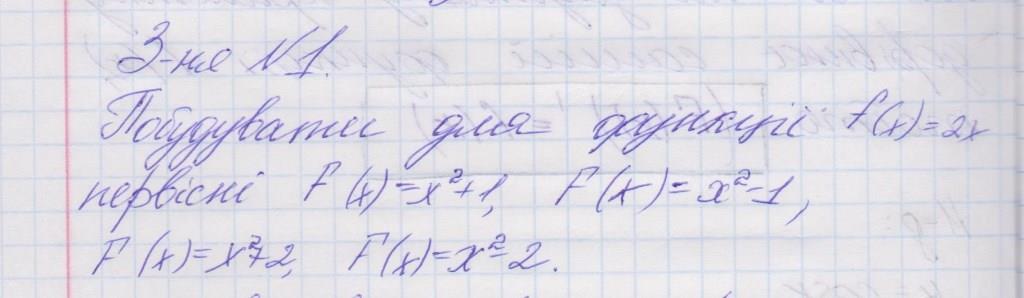 З-ня №1.
Побудувати для функції f(x)=2x
первісні F(x)=x²+1, F(x)=x²-1,
F(x)=x²+2, F(x)=x²-2.